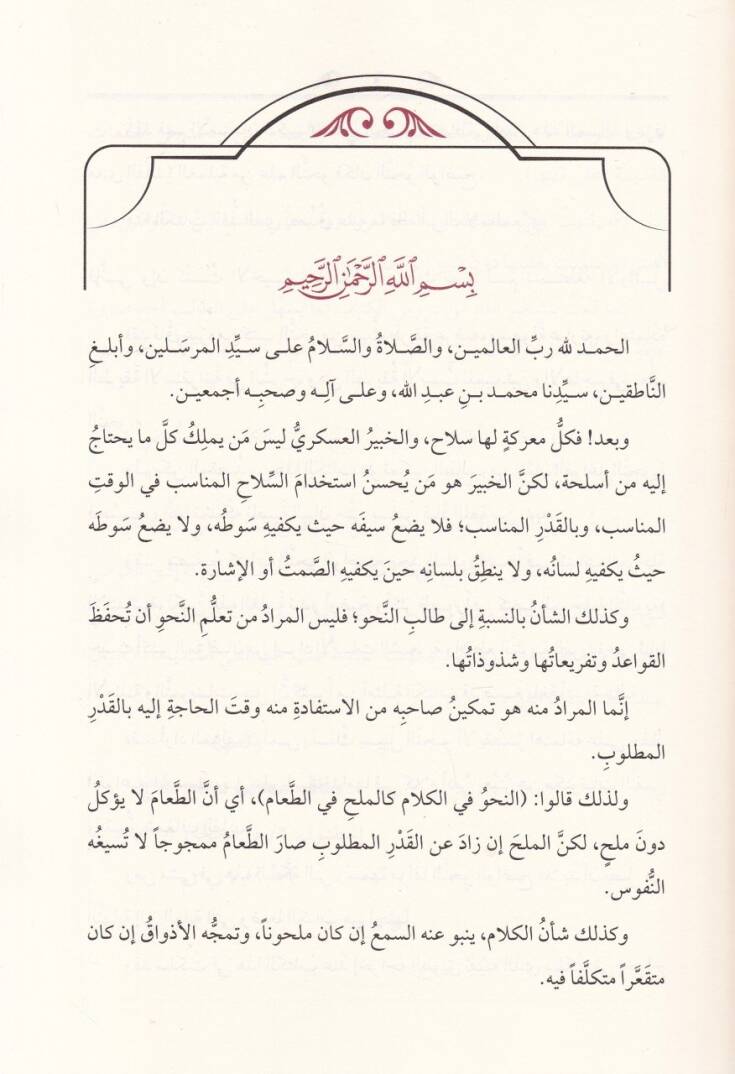 بِسْمِ اللَّهِ الرَّحْمَٰنِ الرَّحِيمِ
الحمـد لله ربِّ العالميـن، والصَّـلاةُ والسَّـلامُ علـى سـيِّدِ المرسَـلين، وأبلـغِ
النَّاطقيـن، سـيِّدِنا محمـد بـنِ عبـدِ الله، وعلـى آلِـه وصحبِـه أجمعيـن.
وبعد! فكلُّ معركةٍ لها سلاح، والخبيرُ العسكريُّ ليسَ مَن يملِكُ كلَّ ما يحتاجُ
إليه من أسلحة، لكنَّ الخبيرَ هو مَن يُحسنُ استخدامَ السِّلاحِ المناسب في الوقتِ
المناسب، وبالقَدْرِ المناسب؛ فلا يضعُ سيفَه حيث يكفيهِ سَوطُه، ولا يضعُ سَوطَه
حيثُ يكفيهِ لسانُه، ولا ينطِقُ بلسانِه حينَ يكفيهِ الصَّمتُ أو الإشارة.
وكذلك الشأنُ بالنسبةِ إلى طالبِ النَّحو؛ فليس المرادُ من تعلُّمِ النَّحوِ أن تُحفَظَ
القواعدُ وتفريعاتُها وشذوذاتُها.
إنَّما المرادُ منه هو تمكينُ صاحبِه من الاستفادةِ منه وقتَ الحاجةِ إليه بالقَدْرِ
المطلوبِ.
ولذلك قالوا: (النحوُ في الكلام كالملحِ في الطَّعام)، أي أنَّ الطَّعامَ لا يؤكلُ
دونَ ملحٍ، لكنَّ الملحَ إن زادَ عن القَدْرِ المطلوبِ صارَ الطَّعامُ ممجوجاً لا تُسيغُه
النُّفوس.
وكذلك شأنُ الكلام، ينبو عنه السمعُ إن كان ملحوناً، وتمجُّه الأذواقُ إن كان
متقَعَّراً متكلَّفاً فيه.